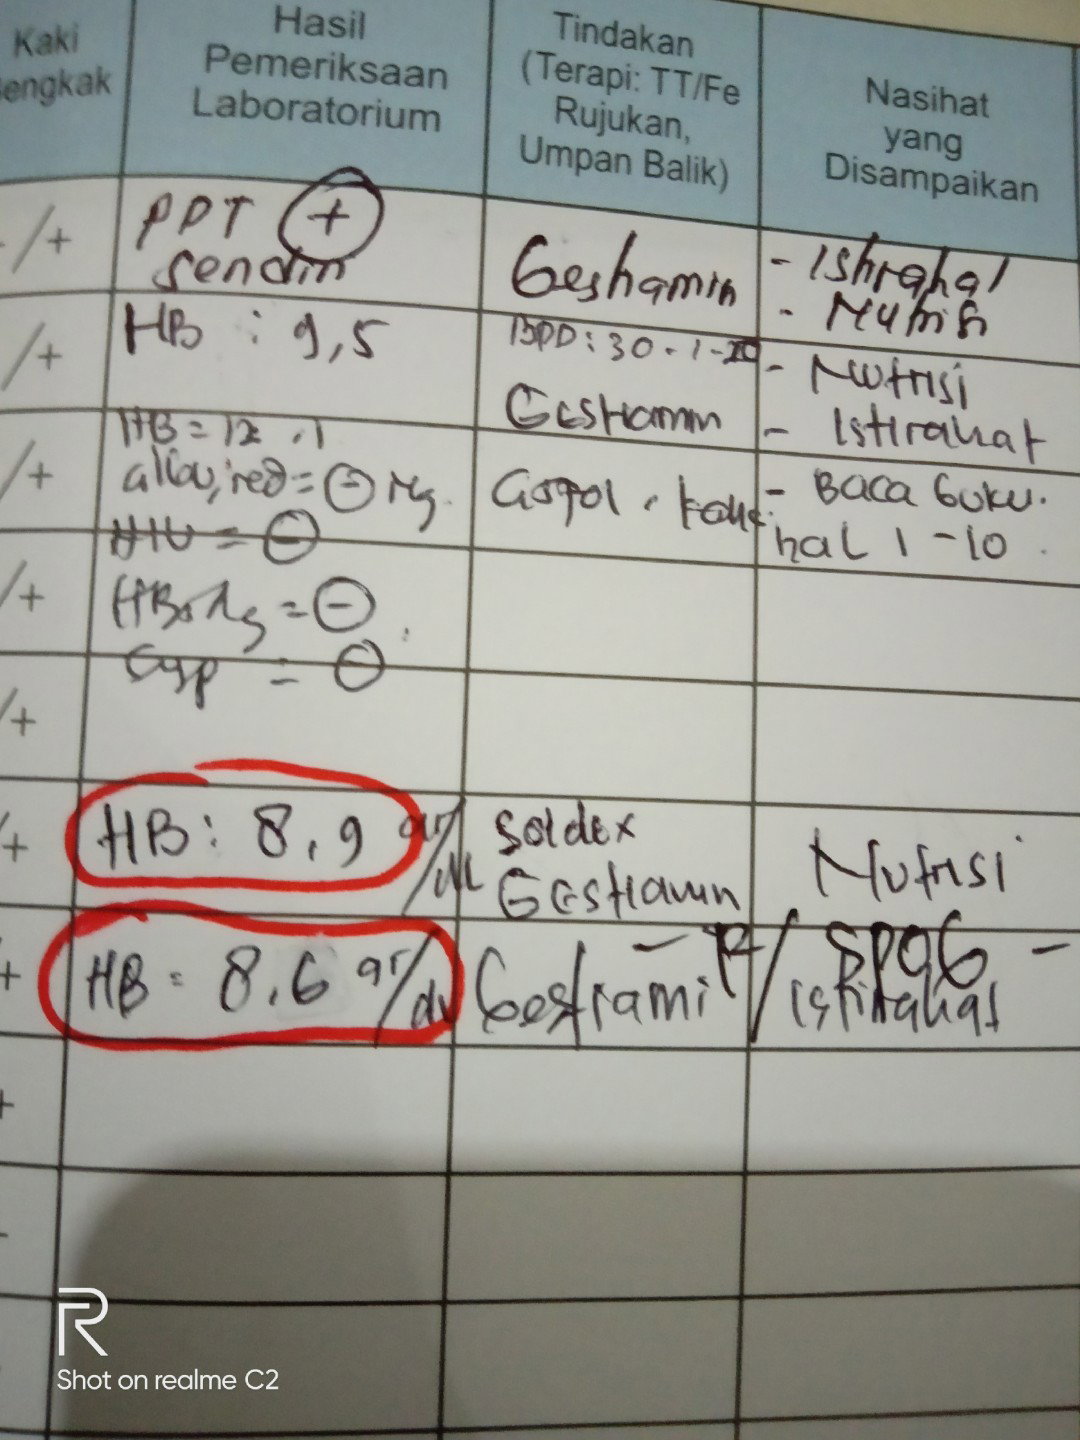 Kaki
engkak
Hasil
Pemeriksaan
Laboratorium
Tindakan
(Terapi: TT/Fe
Rujukan,
Umpan Balik)
Nasihat
yang
Disampaikan
/+
PPT (+)
sendiri
Geshamin
- Istirahat
- Nutrisi
/+
HB : 9,5
BPD: 30-1-20
Gestiamin
- Nutrisi
- Istirahat
/+
HB = 12.1
red = (-) Ng.
HIV = (-)
- Baca buku.
hal 1 - 10.
/+
HBsAg = (-)
= (-)
/+
/+
HB: 8,9 gr/dl
Soldex
Gestiamin
Nutrisi
+
HB = 8,6 gr/dl
Gestiami
R/ SPOG -
istirahat
+
-
Shot on realme C2